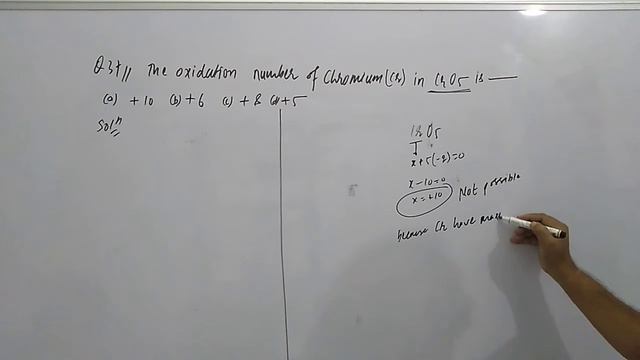 Q 37// The oxidation number of Chromium(Cr) in CrO5 is —
(a) +10 (b) +6 (c) +8 (d) +5
Solⁿ
CrO5
x+5(-2)=0
x-10=0
x=+10 Not possible
because Cr have max